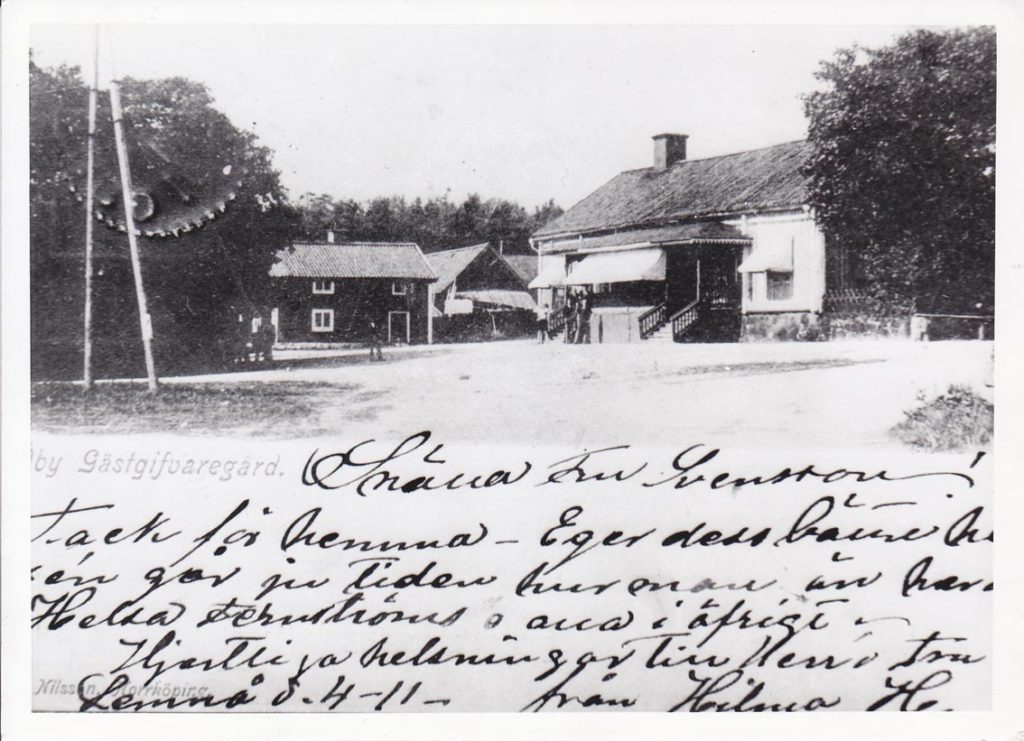 by Gästgifvaregård.
Snälla Fru Svensson!
Tack för hemma - Eger dess bättre he
en går ju tiden hur man än har
Helsa Fernströms o ala i öfrigt -
Hjärtliga helsningar till Herr o Fru
Nilsson, Norrköping.
Lemnå 8.4-11- från Hilma H.